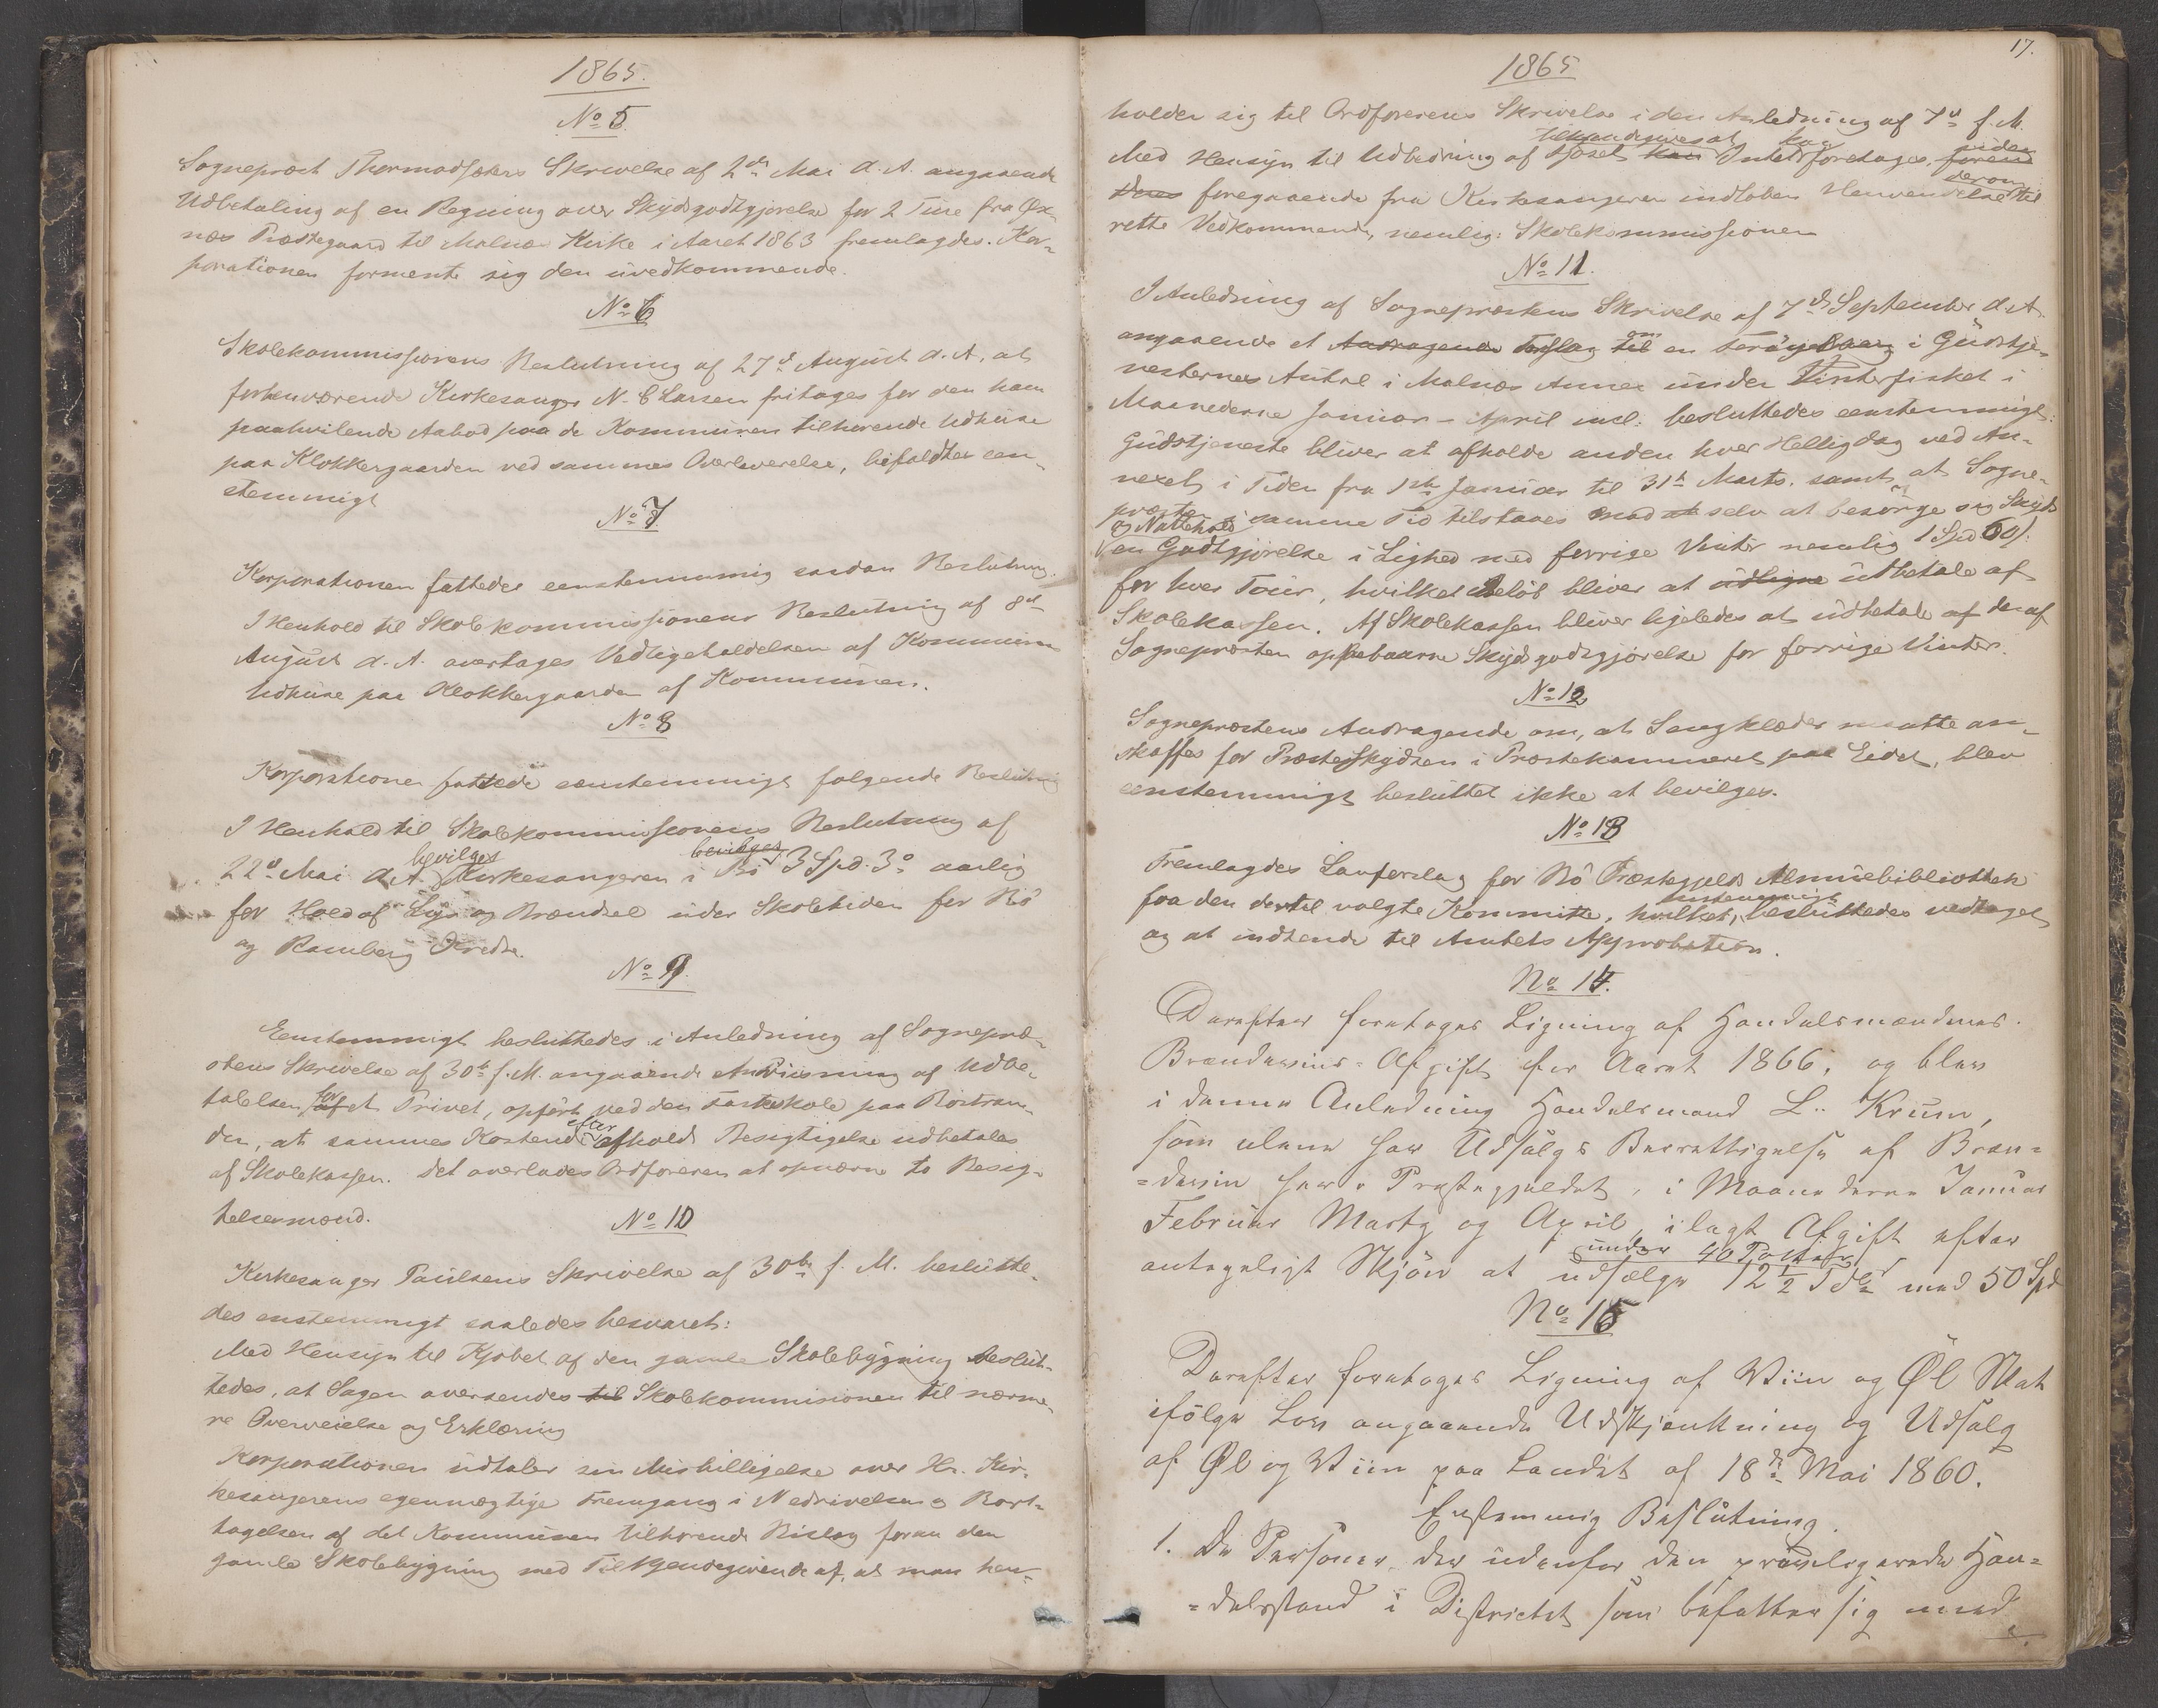 1865.
No 5
Sogneprest Thormodsæters Skrivelse af 2den Mai d. A. angaaende
Udbetaling af en Regning over Skydsgodtgjørelse for 2 Ture fra Øx-
næs Prestegaard til Malnæs Kirke i Aaret 1863 fremlagdes. Kor-
porationen formente sig den uvedkommende.
No 6
Skolekommissionens Beslutning af 27de August d. A. at
forhenværende Kirkesanger N. C Larsen fritages for den ham
paahvilende Aabod paa de Kommunen tilhørende Udhuse
paa Klokkergaarden ved sammes Overleverelse, bifaldtes een-
stemmigt
No 7
Korporationen fattedes eenstemmig saadan Beslutning.
I Henhold til Skolekommissionens Beslutning af 8de
August d. A. overtages Vedligeholdelsen af Kommunens
Udhuse paa Klokkergaarden af Kommunen.
No 8
Korporationen fattede eenstemmigt følgende Beslutning
I Henhold til Skolekommissionens Beslutning af
22de Mai d. A. bevilges Kirkesangeren i Bö bevilges 3 Spd. 3 o aarlig
for Hold af Lys og Brændsel under Skoletiden for Bö
og Ramberg Kredse.
No 9.
Eenstemmigt besluttedes i Anledning af Sognepræ-
stens Skrivelse af 30te f. M. angaaende Anviisning af Udbe-
talelsen for et Privet, opført ved den faste skole paa Böstran-
den, at sammes Kostende efter afholdt Besigtigelse udbetales
af Skolekassen. Det overlades Ordføreren at opnævne to Besig-
telsesmænd.
No 10
Kirkesanger Paulsens Skrivelse af 30te f. M. beslutte-
des enstemmigt saaledes besvaret:
Med Hensyn til Kjøbet af den gamle Skolebygning beslut-
tedes, at Sagen oversendes til Skolekommisionen til nærme-
re Overveielse og Erklæring
Korporationen udtaler sin Misbilligelse over Hr. Kir-
kesangerens egenmægtige Fremgang i Nedrivelsen og Bort-
tagelsen af det Kommunen tilhørende Bislag foran den
gamle Skolebygning med Tilkjendegivende af, at man hen-
17.
1865
holder sig til Ordførerens Skrivelse i den Anledning af 7de f. M.
Med Hensyn til Udbedring af Fjøset tilkjendegives at kan Intet foretages, uden
foregaaende fra Kirkesangeren indløben Henvendelse derom til
rette Vedkommende, nemlig: Skolekommissionen
No 11.
I Anledning af Sogneprestens Skrivelse af 7de September d. A.
angaaende et Andragende Forslag til om en Forøgelse i Gudstje-
nesternes Antal i Malnæs Annex under Vinterfisket i
Maanederne Januar - April incl. besluttedes eenstemmigt:
Gudstjeneste bliver at afholde anden hver Helligdag ved An-
nexet i Tiden fra 1ste Januar til 31te Marts. samt at Sogne-
præsten i samme Tid tilstaaes mod at selv at besørge sig Skyds
og Nattehold en Godtgjørelse i Lighed med forrige Vinter nemlig 1 Spd 60 s.
for hver Tour, hvilket Beløb bliver at udligne udbetale af
Skolekassen. Af Skolekassen bliver ligeledes at udbetale af den af
Sognepresten oppebaarne Skydsgodtgjørelse for forrige Vinter.
No 12
Sogneprestens Andragende om, at Sengklæder maatte an-
skaffes for Presteskydsen i Prestekammeret paa Eidet, blev
eenstemmigt besluttet ikke at bevilges.
No 13
Fremlagdes Lovforslag for Bö Præstegjelds Almuebibliothek
fra den dertil valgte Kommitte, hvilket, eenstemmigt besluttedes vedtaget
og at indsende til Amtets Approbation.
No 14.
Derefter foretoges Ligning af Handelsmændenes
Brændeviins-Afgift for Aaret 1866, og blev
i denne Anledning Handelsmand L. Krum,
som alene har Udsalgs Berettigelse af Bræn-
=deviin her i Prestegjeldet, i Maanederne Januar
Februar Marts og April, ilagt Afgift efter
antageligt Skjön at udsælge under 40 Potter 12 1/2 Tdr med 50 Spd
No 15
Derefter foretoges Ligning af Viin og Øl Skat
ifölge Lov angaaende Udskjenkning og Udsalg
af Øl og Viin paa Landet af 18de Mai 1860.
Enstemmig Beslutning.
1. De Personer, der udenfor den priviligerede Han=
=delsstand i Districtet som befatter sig med